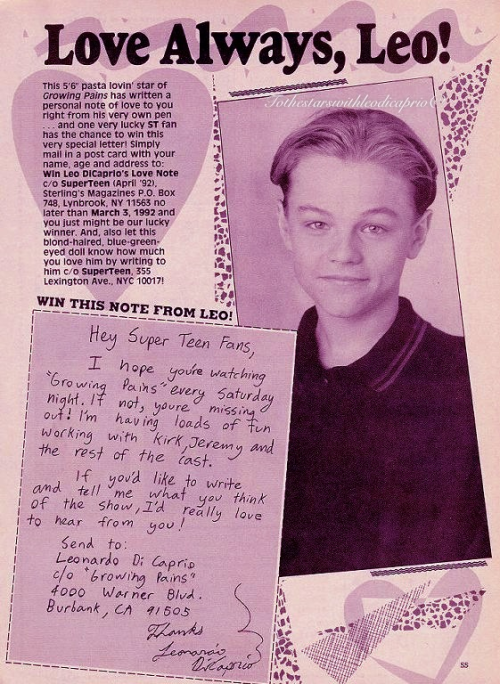 Love Always, Leo!
Tothestarswithleodicaprio
This 5'6" pasta lovin' star of
Growing Pains has written a
personal note of love to you
right from his very own pen
. . . and one very lucky ST fan
has the chance to win this
very special letter! Simply
mail in a post card with your
name, age and address to:
Win Leo DiCaprio's Love Note
c/o SuperTeen (April '92),
Sterling's Magazines P.O. Box
748, Lynbrook, NY 11563 no
later than March 3, 1992 and
you just might be our lucky
winner. And, also let this
blond-haired, blue-green-
eyed doll know how much
you love him by writing to
him c/o SuperTeen, 355
Lexington Ave., NYC 10017!
WIN THIS NOTE FROM LEO!
Hey Super Teen Fans,
I hope you're watching
"Growing Pains" every Saturday
night. If not, youre missing
out! I'm having loads of fun
working with Kirk, Jeremy and
the rest of the cast.
If you'd like to write
and tell me what you think
of the show, I'd really love
to hear from you!
Send to:
Leonardo Di Caprio
c/o "Growing Pains"
4000 Warner Blvd.
Burbank, CA 91505
Thanks
Leonardo
DiCaprio
55